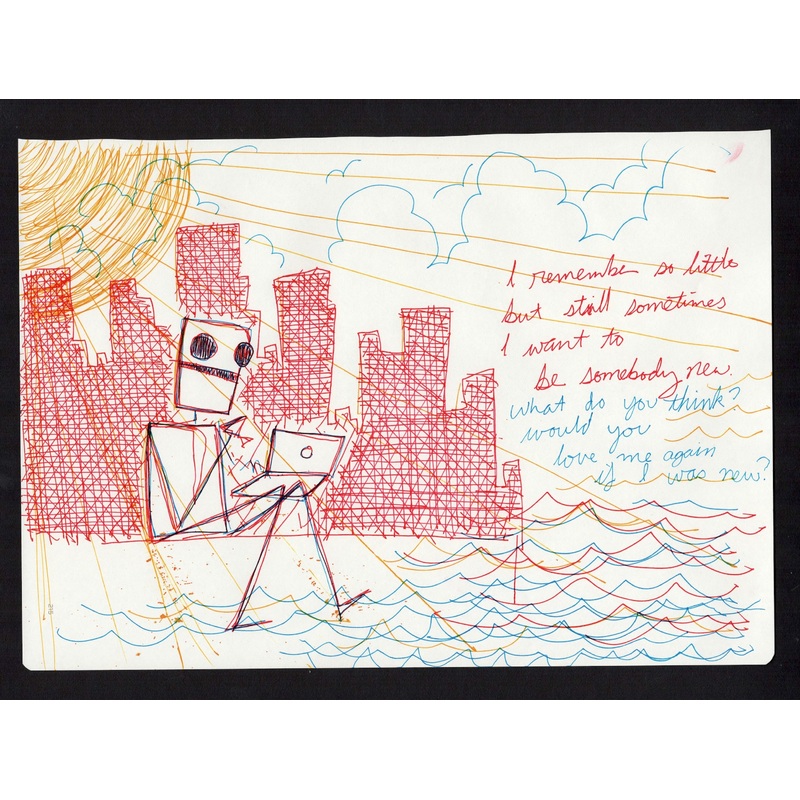 I remember so little
but still sometimes
I want to
be somebody new.
what do you think?
would you
love me again
if I was new?